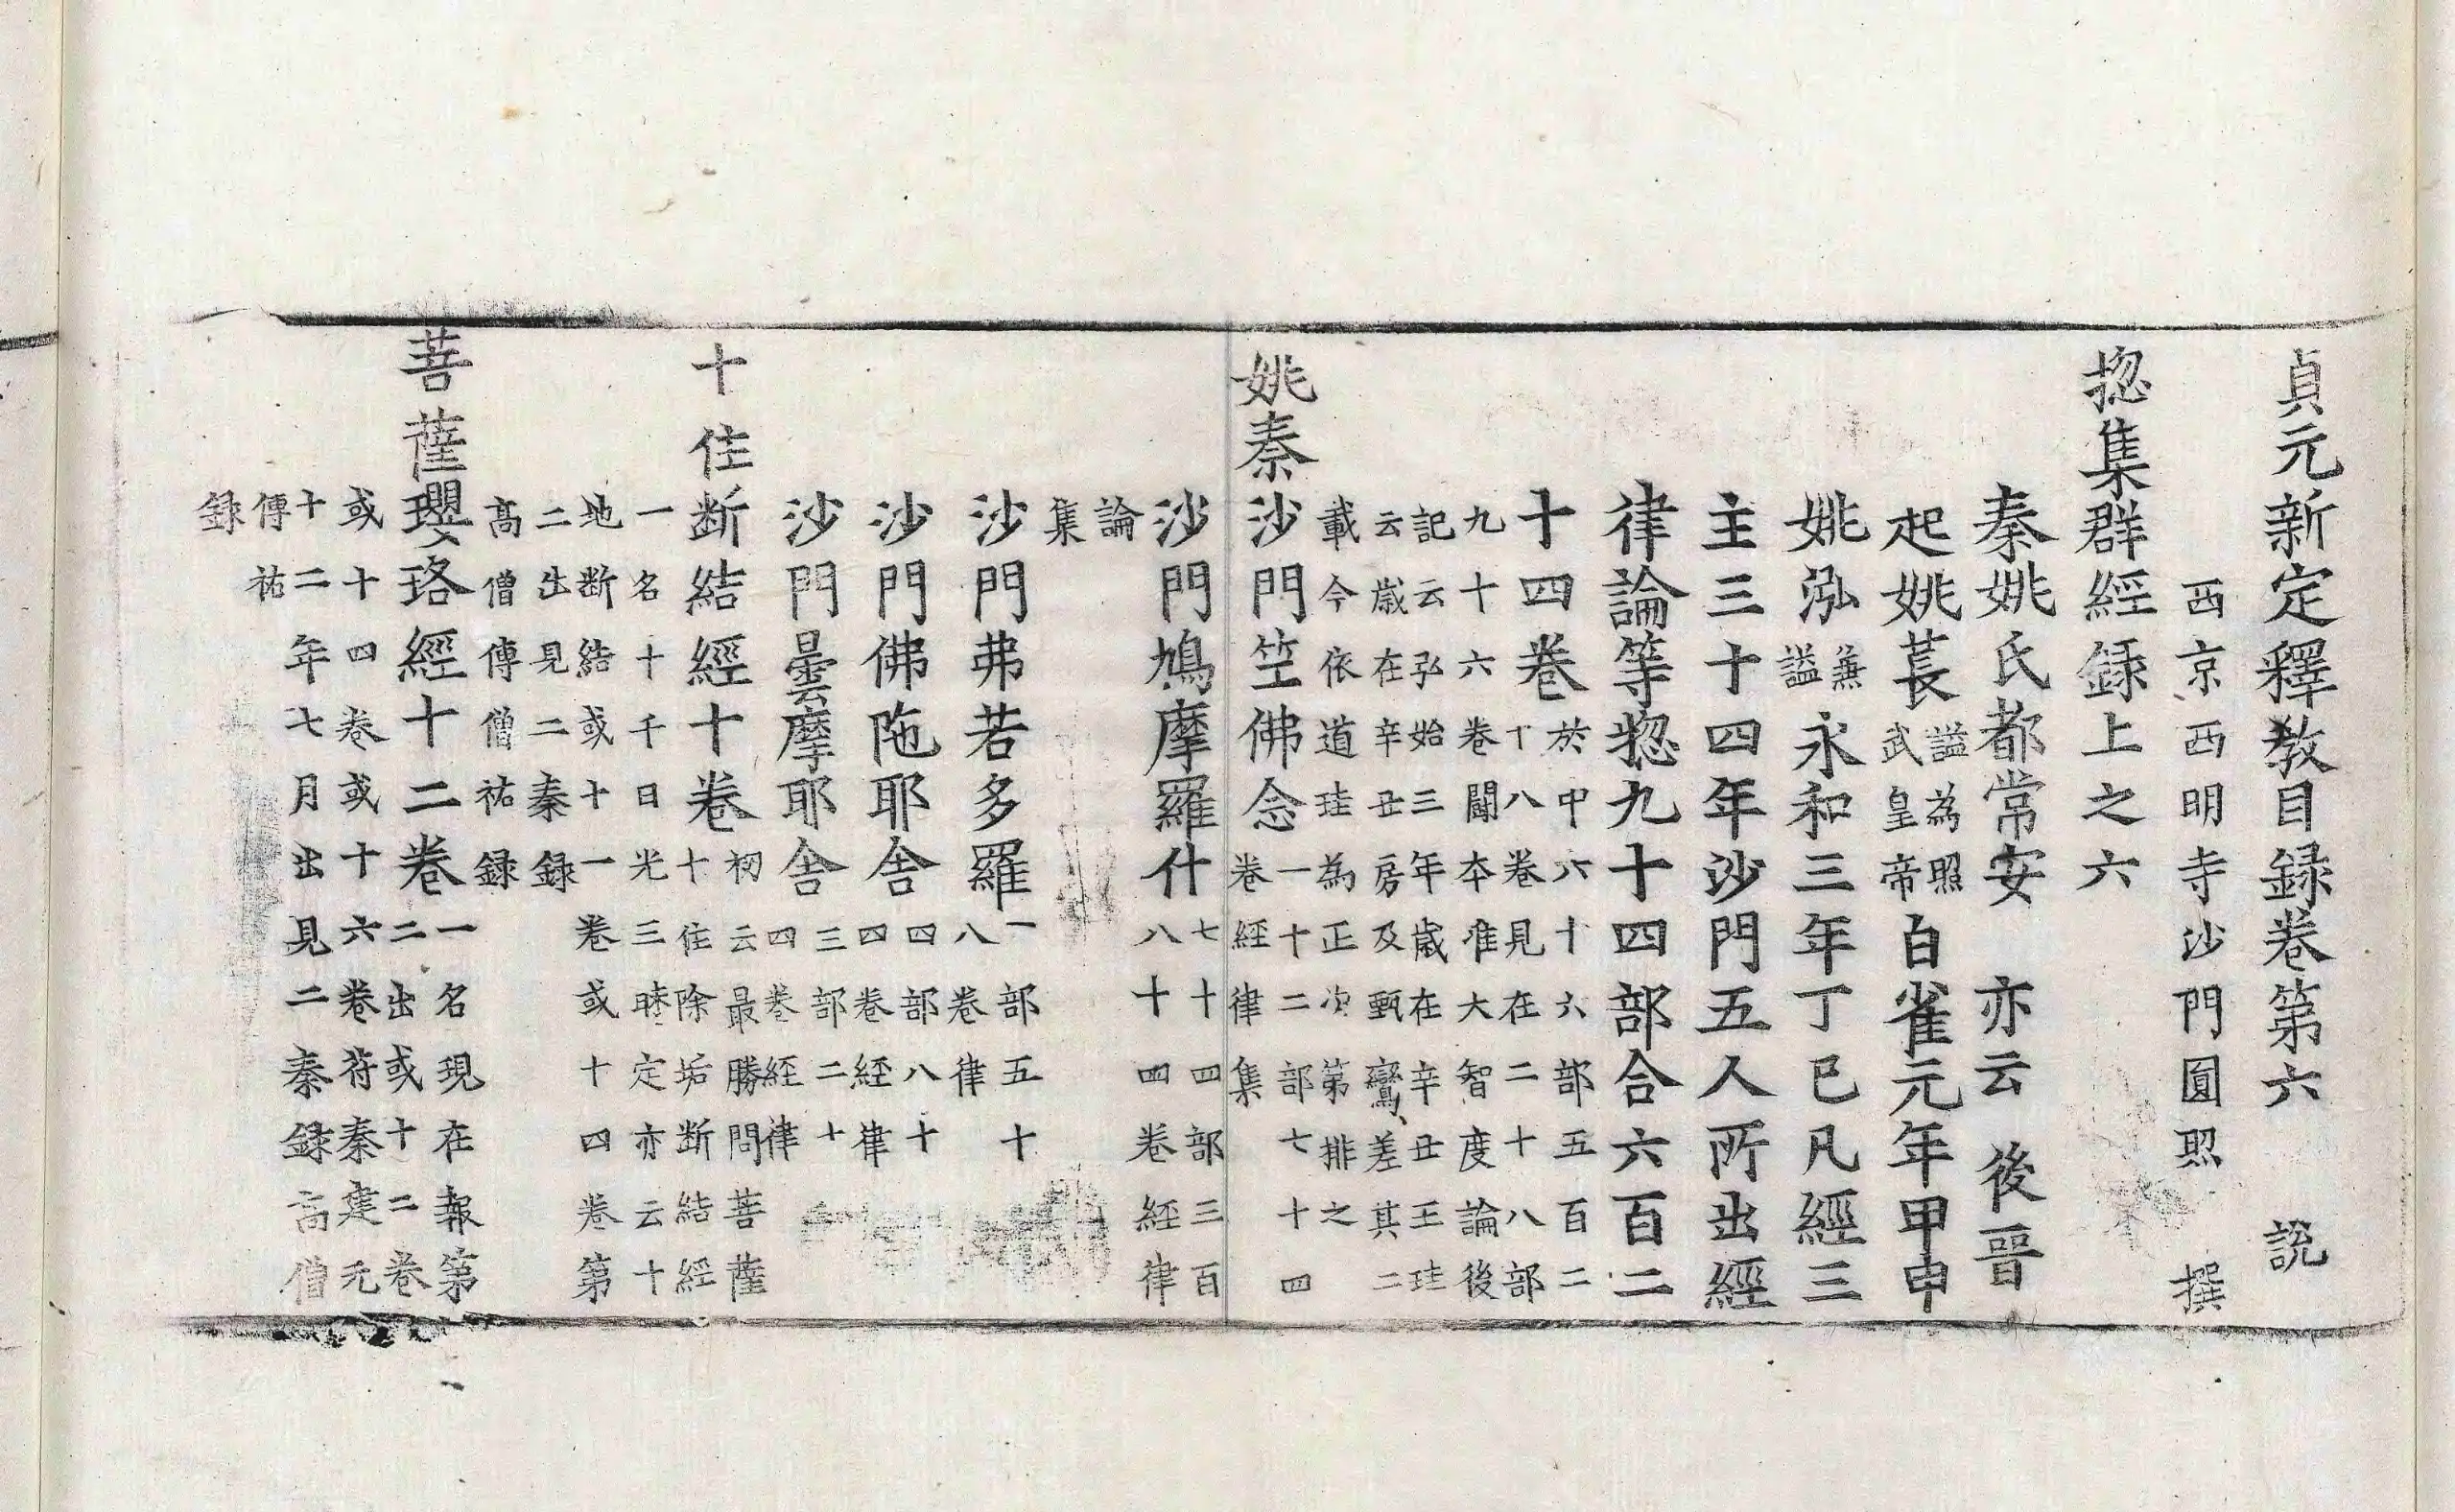 貞元新定釋教目録卷第六 說
西京西明寺沙門圓照 撰
揔集群經録上之六
秦姚氏都常安 亦云後晉
起姚萇謚為照武皇帝白雀元年甲申
姚泓無謚永和三年丁巳凡經三
主三十四年沙門五人所出經
律論等揔九十四部合六百二
十四卷於中六十六部五百二十八卷見在二十八部
九十六卷闕本准大智度論後
記云弘始三年歲在辛丑王珪
云歲在辛丑房及甄鸞差其二
載今依道珪為正次第排之
姚秦沙門笁佛念一十二部七十四卷經律集
沙門鳩摩羅什七十四部三百八十四卷經律
論集
沙門弗若多羅一部五十八卷律
沙門佛陁耶舍四部八十四卷經律
沙門曇摩耶舍三部二十四卷經律
十住断結經十卷初云最勝問菩薩十住除垢断結經
一名十千日光三昧定亦云十
地断結或十一卷或十四卷第
二出見二秦録
高僧傳僧祐録
菩薩瓔珞經十二卷一名現在報第二出或十二卷
或十四卷或十六卷符秦建元
十二年七月出見二秦録高僧
傳祐
録